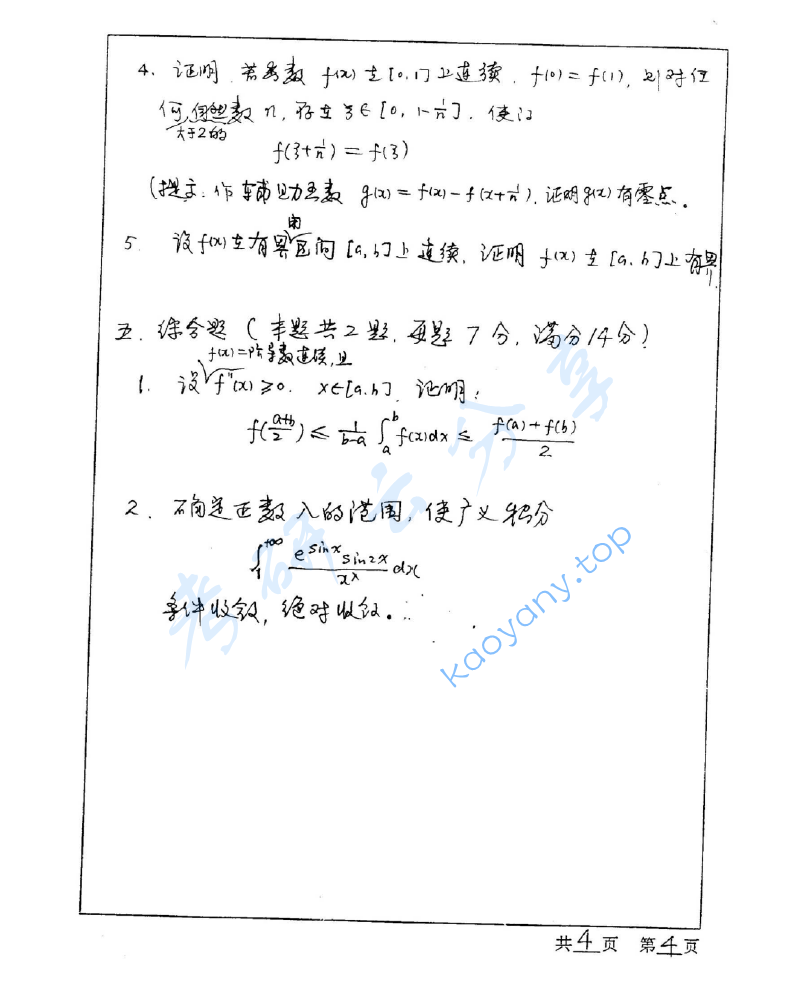 4. 证明 若函数 f(x) 在 [0,1] 上连续, f(0) = f(1), 则对任
何大于2的自然数 n, 存在 ξ∈[0, 1-1/n]. 使得
f(ξ+1/n) = f(ξ)
(提示: 作辅助函数 g(x) = f(x) - f(x+1/n), 证明 g(x) 有零点.
5. 设 f(x) 在有界闭区间 [a,b] 上连续, 证明 f(x) 在 [a,b] 上有界.
五. 综合题 (本题共2题, 每题7分, 满分14分)
1. 设 f(x)二阶导数连续,且 f''(x) ≥ 0. x∈[a,b] 证明:
f((a+b)/2) ≤ 1/(b-a) ∫_a^b f(x)dx ≤ (f(a)+f(b))/2
2. 确定正数 λ 的范围, 使广义积分
∫_1^{+∞} (e^{sinx} sin2x)/x^λ dx
条件收敛, 绝对收敛.
考研云分享
kaoyany.top
共4页 第4页